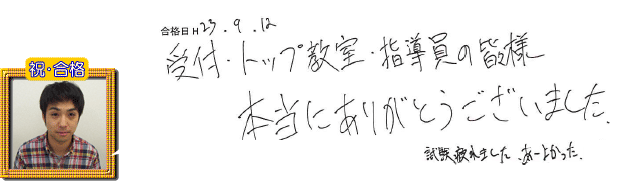 合格日 H 23.9.12
受付・トップ教室・指導員の皆様
祝・合格
本当にありがとうございました.
試験疲れました. あーよかった.